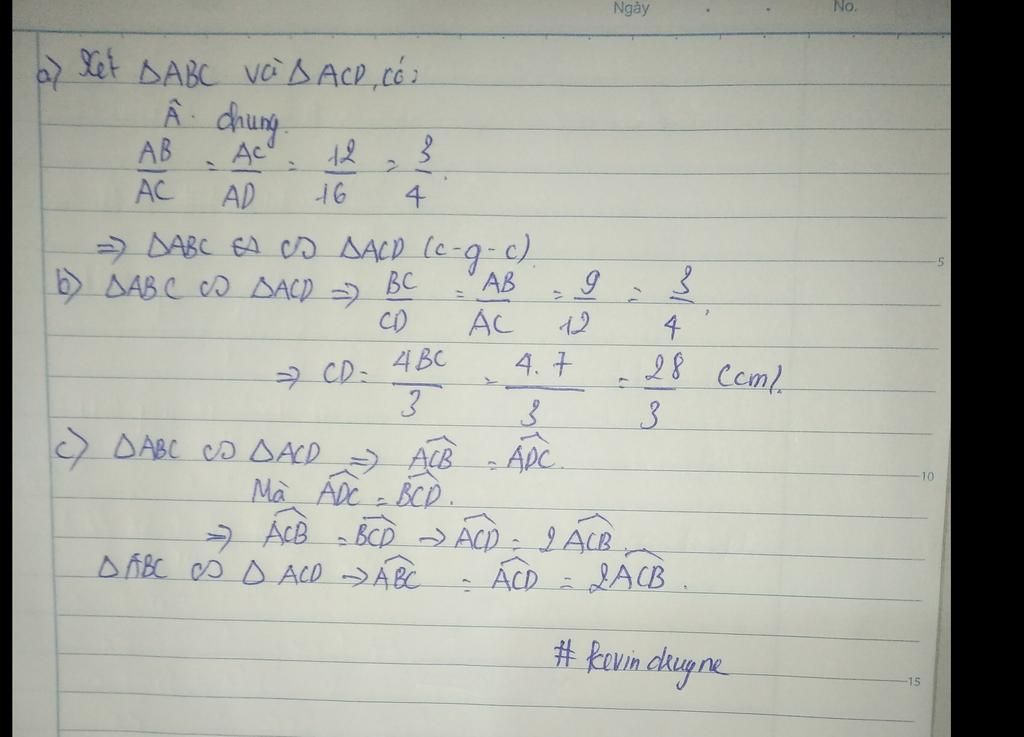 Ngày . . No.
a) Xét ΔABC và ΔACD, có:
Â chung.
AB/AC = AC/AD = 12/16 = 3/4.
=> ΔABC ∽ ΔACD (c-g-c)
5
b) ΔABC ∽ ΔACD => BC/CD = AB/AC = 9/12 = 3/4,
=> CD = 4BC/3 = 4.7/3 = 28/3 (cm).
c) ΔABC ∽ ΔACD => \widehat{ACB} = \widehat{ADC}.
10
Mà \widehat{ADC} = \widehat{BCD}.
=> \widehat{ACB} = \widehat{BCD} → \widehat{ACD} = 2\widehat{ACB}.
ΔABC ∽ ΔACD → \widehat{ABC} = \widehat{ACD} = 2\widehat{ACB}.
15